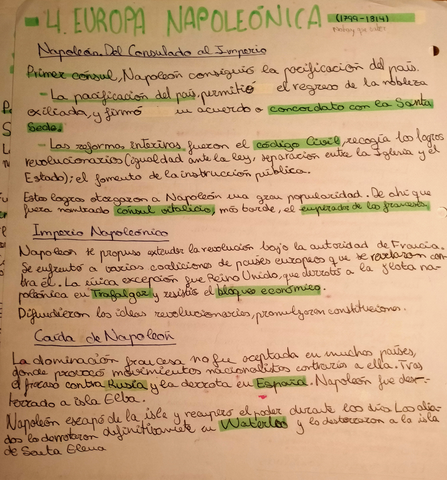 4. EUROPA NAPOLEÓNICA (1799-1814)
Napoleón. Del Consulado al Imperio
Primer cónsul, Napoleón consiguió la pacificación del país.
- La pacificación del país, permitió el regreso de la nobleza
exiliada, y firmó un acuerdo o concordato con la Santa
Sede.
- Las reformas interiores, fueron el código Civil, recogía los logros
revolucionarios (igualdad ante la ley, separación entre la Iglesia y el
Estado); el fomento de la instrucción pública.
Estos logros otorgaron a Napoleón una gran popularidad. De ahí que
fuera nombrado cónsul vitalicio, más tarde, el emperador de los franceses.
Imperio Napoleónico
Napoleón se propuso extender la revolución bajo la autoridad de Francia.
Se enfrentó a varias coaliciones de países europeos que se revelaron con-
tra él. La única excepción fue Reino Unido, que derrotó a la flota na-
poleónica en Trafalgar y resistió el bloqueo económico.
Difundieron las ideas revolucionarias, promulgaron constituciones.
Caída de Napoleón
La dominación francesa no fue aceptada en muchos países,
donde provocó movimientos nacionalistas contrarios a ella. Tras
el fracaso contra Rusia y la derrota en España. Napoleón fue des-
terrado a isla Elba.
Napoleón escapó de la isla y recuperó el poder durante los días. Los alia-
dos lo derrotaron definitivamente en Waterloo y lo desterraron a la isla
de Santa Elena